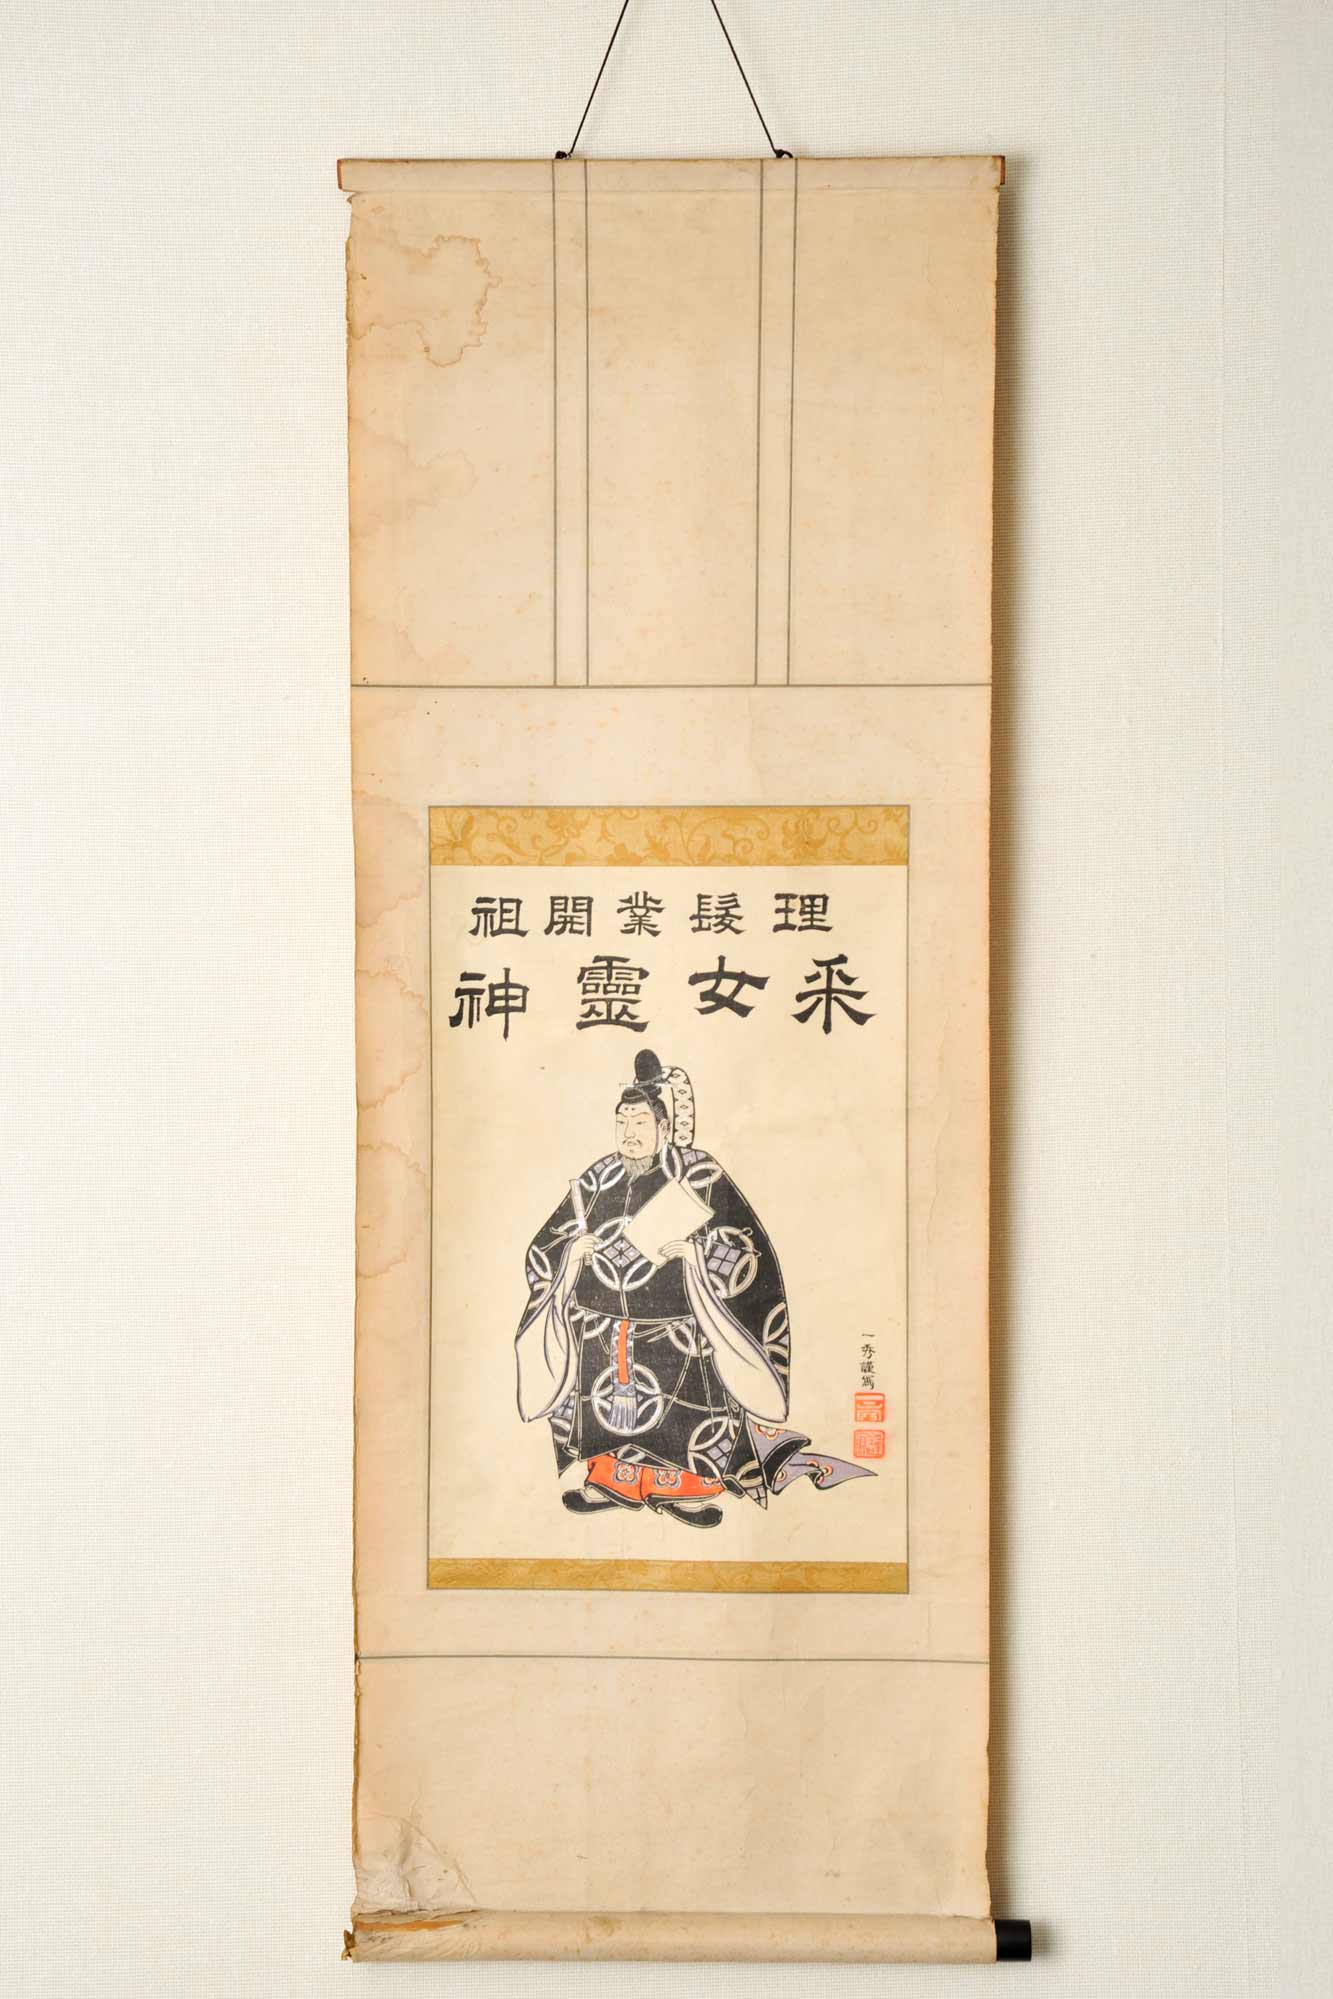 理髮業開祖
釆女靈神
一秀謹寫